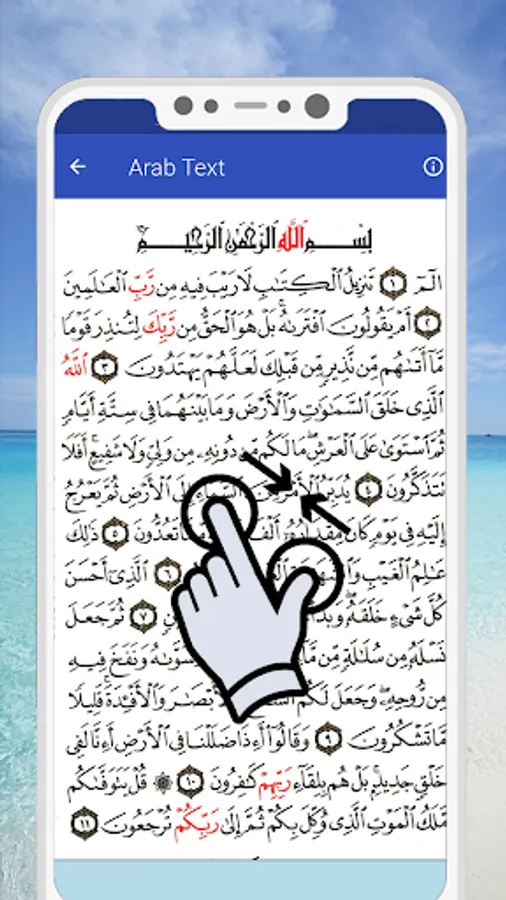 Arab Text
بِسْمِ ٱللَّهِ ٱلرَّحْمَٰنِ ٱلرَّحِيمِ
الٓمٓ ١ تَنزِيلُ ٱلْكِتَٰبِ لَا رَيْبَ فِيهِ مِن رَّبِّ ٱلْعَٰلَمِينَ
٢ أَمْ يَقُولُونَ ٱفْتَرَىٰهُ ۚ بَلْ هُوَ ٱلْحَقُّ مِن رَّبِّكَ لِتُنذِرَ قَوْمًا
مَّآ أَتَىٰهُم مِّن نَّذِيرٍ مِّن قَبْلِكَ لَعَلَّهُمْ يَهْتَدُونَ ٣ ٱللَّهُ
ٱلَّذِى خَلَقَ ٱلسَّمَٰوَٰتِ وَٱلْأَرْضَ وَمَا بَيْنَهُمَا فِى سِتَّةِ أَيَّامٍ
ثُمَّ ٱسْتَوَىٰ عَلَى ٱلْعَرْشِ ۖ مَا لَكُم مِّن دُونِهِۦ مِن وَلِىٍّ وَلَا شَفِيعٍ ۚ أَفَلَا
تَتَذَكَّرُونَ ٤ يُدَبِّرُ ٱلْأَمْرَ مِنَ ٱلسَّمَآءِ إِلَى ٱلْأَرْضِ ثُمَّ يَعْرُجُ
إِلَيْهِ فِى يَوْمٍ كَانَ مِقْدَارُهُۥٓ أَلْفَ تَعُدُّونَ ٥ ذَٰلِكَ
عَٰلِمُ ٱلْغَيْبِ وَٱلشَّهَٰدَةِ ٦ ٱلَّذِىٓ أَحْسَنَ
كُلَّ شَىْءٍ خَلَقَهُۥ ۖ وَبَدَأَ ٧ ثُمَّ جَعَلَ
نَسْلَهُۥ مِن سُلَٰلَةٍ مِّن سَوَّىٰهُ وَنَفَخَ فِيهِ
مِن رُّوحِهِۦ ۖ وَجَعَلَ لَكُمُ ٱلسَّمْعَ وَٱلْأَبْصَٰرَ وَٱلْأَفْـِٔدَةَ ۚ قَلِيلًا
مَّا تَشْكُرُونَ ٩ وَقَالُوٓا۟ أَءِذَا ضَلَلْنَا فِى ٱلْأَرْضِ أَءِنَّا لَفِى
خَلْقٍ جَدِيدٍۭ ۚ بَلْ هُم بِلِقَآءِ رَبِّهِمْ كَٰفِرُونَ ١٠ ۞ قُلْ يَتَوَفَّىٰكُم
مَّلَكُ ٱلْمَوْتِ ٱلَّذِى وُكِّلَ بِكُمْ ثُمَّ إِلَىٰ رَبِّكُمْ تُرْجَعُونَ ١١